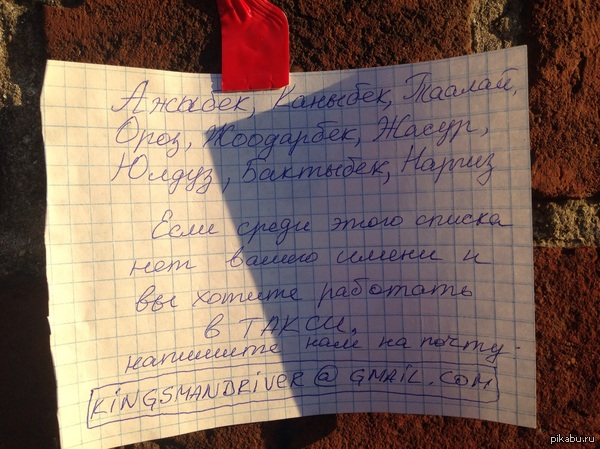 Ажыбек, Каныбек, Таалай,
Ороз, Жоодарбек, Жасур,
Юлдуз, Бактыбек, Наргиз
Если среди этого списка
нет вашего имени и
вы хотите работать
в ТАКСИ,
напишите нам на почту.
KINGSMANDRIVER@GMAIL.COM
pikabu.ru